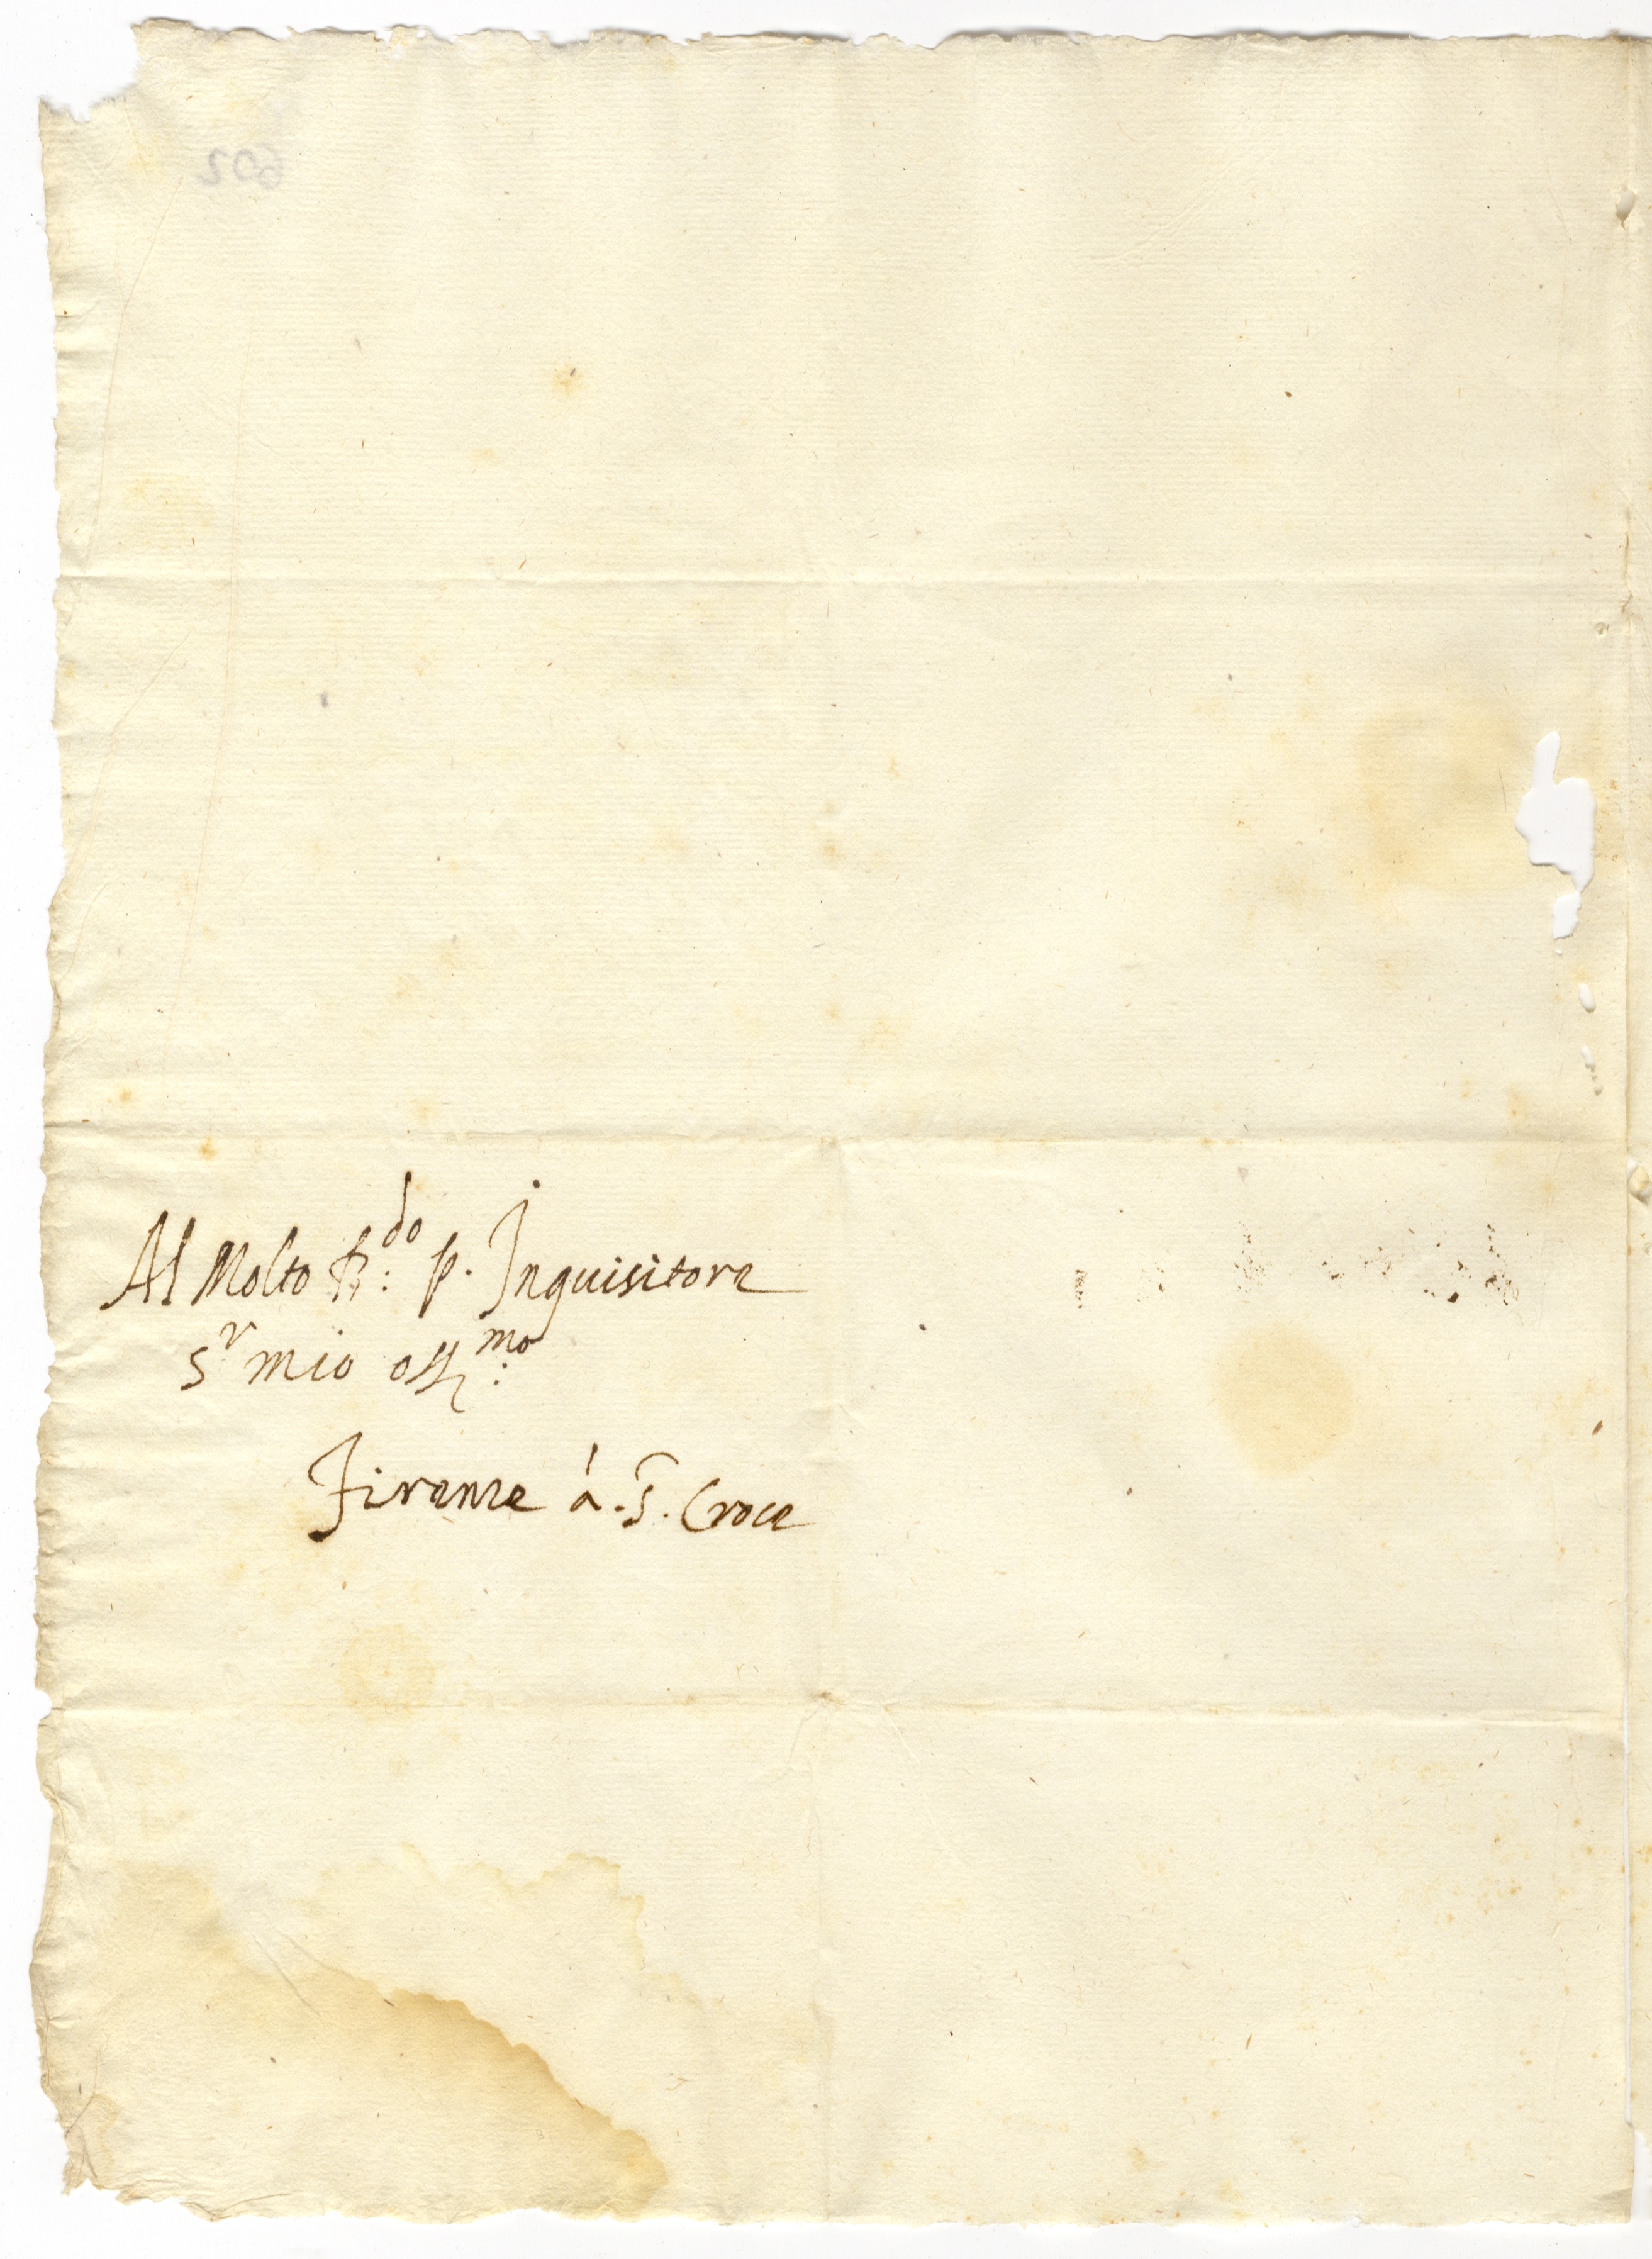 Al Molto R:do P. Inquisitore
Sr mio oss:mo
Firenze à. S. Croce